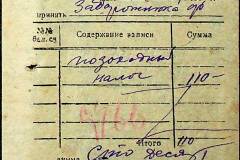 принять Заборотжика ф
№№ Содержание записи Сумма
подоходный
налог 110-
Итого 110
Сто деся